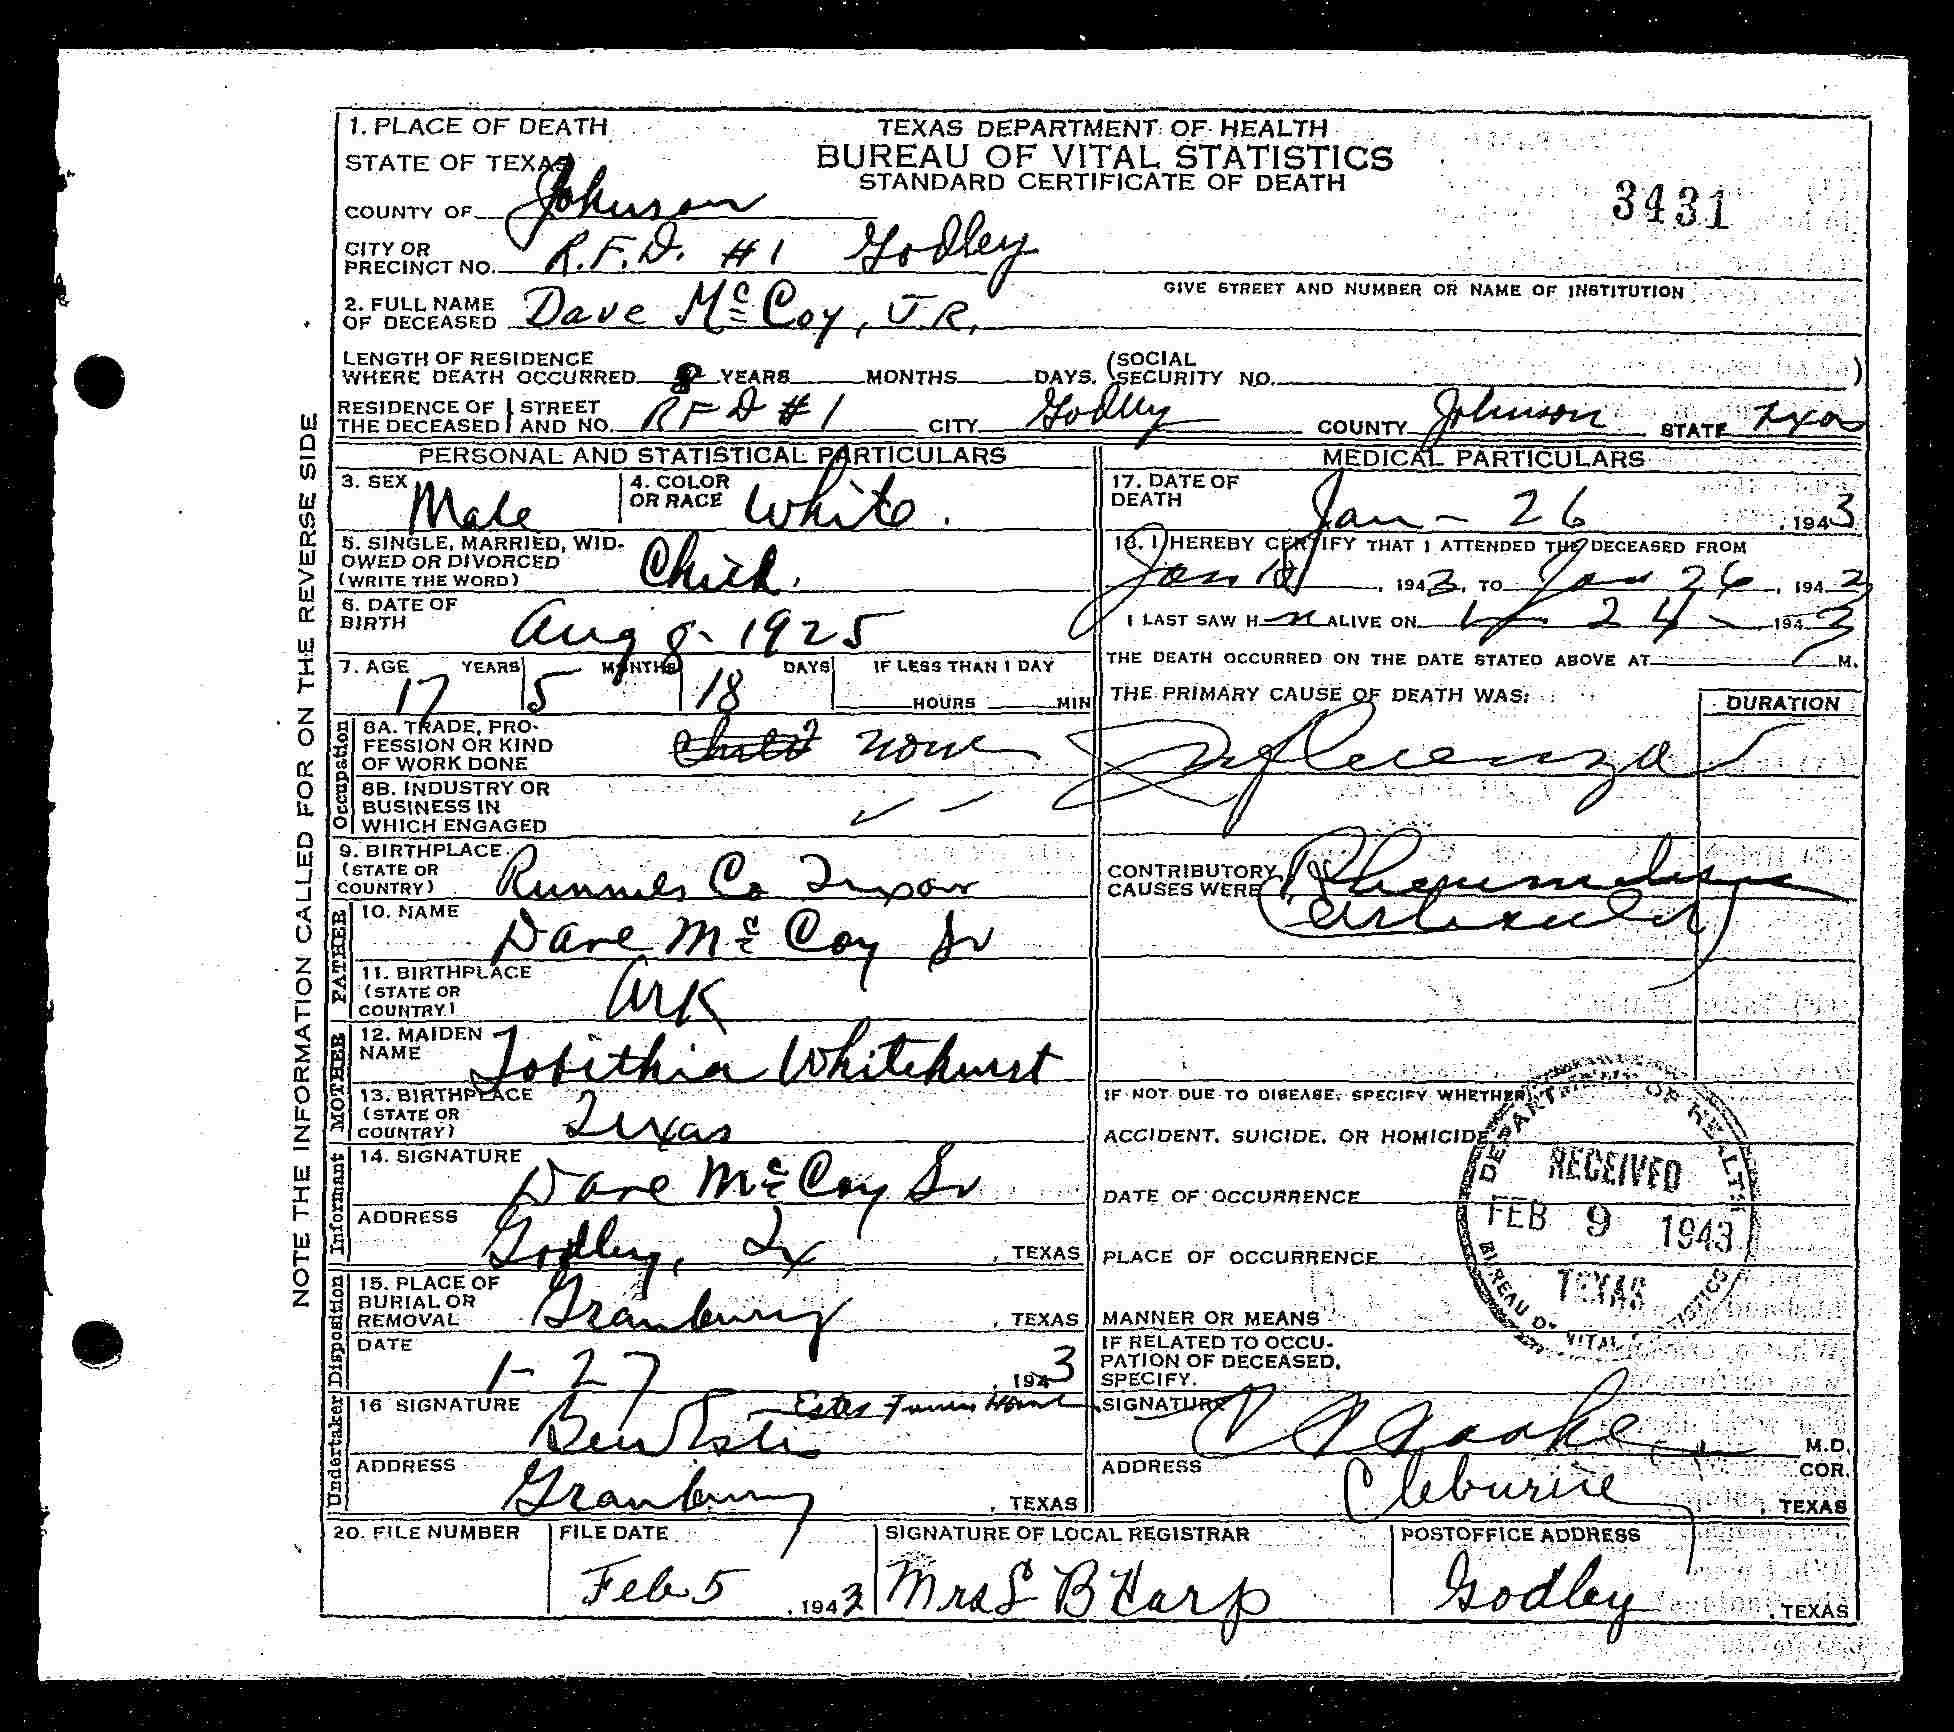 1. PLACE OF DEATH
TEXAS DEPARTMENT OF HEALTH
BUREAU OF VITAL STATISTICS
STANDARD CERTIFICATE OF DEATH
3431
STATE OF TEXAS
COUNTY OF Johnson
CITY OR PRECINCT NO. R.F.D. #1 Godley
GIVE STREET AND NUMBER OR NAME OF INSTITUTION
2. FULL NAME OF DECEASED Dave McCoy, JR.
LENGTH OF RESIDENCE WHERE DEATH OCCURRED 8 YEARS MONTHS DAYS. (SOCIAL SECURITY NO. )
RESIDENCE OF THE DECEASED STREET AND NO. RFD #1 CITY Godley COUNTY Johnson STATE Texas
NOTE THE INFORMATION CALLED FOR ON THE REVERSE SIDE
PERSONAL AND STATISTICAL PARTICULARS
3. SEX Male 4. COLOR OR RACE White.
5. SINGLE, MARRIED, WIDOWED OR DIVORCED (WRITE THE WORD) Child.
6. DATE OF BIRTH Aug 8-1925
7. AGE 17 YEARS 5 MONTHS 18 DAYS IF LESS THAN 1 DAY HOURS MIN
Occupation
8A. TRADE, PROFESSION OR KIND OF WORK DONE Child none
8B. INDUSTRY OR BUSINESS IN WHICH ENGAGED
9. BIRTHPLACE (STATE OR COUNTRY) Runnels Co Texas
FATHER
10. NAME Dave McCoy Sr
11. BIRTHPLACE (STATE OR COUNTRY) Ark
MOTHER
12. MAIDEN NAME Tobithia Whitehurst
13. BIRTHPLACE (STATE OR COUNTRY) Texas
Informant
14. SIGNATURE Dave McCoy Sr
ADDRESS Godley, Tx, TEXAS
Disposition
15. PLACE OF BURIAL OR REMOVAL Granbury, TEXAS
DATE 1-27, 1943
Undertaker
16 SIGNATURE Ben Estes Estes Funeral Home
ADDRESS Granbury, TEXAS
MEDICAL PARTICULARS
17. DATE OF DEATH Jan-26, 1943
18. I HEREBY CERTIFY THAT I ATTENDED THE DECEASED FROM
Jan, 1943, TO Jan 26, 1943
I LAST SAW H ALIVE ON 24, 1943
THE DEATH OCCURRED ON THE DATE STATED ABOVE AT M.
THE PRIMARY CAUSE OF DEATH WAS: DURATION
Influenza
CONTRIBUTORY CAUSES WERE
IF NOT DUE TO DISEASE, SPECIFY WHETHER
ACCIDENT, SUICIDE, OR HOMICIDE
DATE OF OCCURRENCE
PLACE OF OCCURRENCE
MANNER OR MEANS
IF RELATED TO OCCUPATION OF DECEASED, SPECIFY.
DEPARTMENT OF HEALTH
RECEIVED
FEB 9 1943
TEXAS
BUREAU OF VITAL STATISTICS
SIGNATURE M.D.
COR.
ADDRESS Cleburne, TEXAS
20. FILE NUMBER FILE DATE Feb 5, 1943 SIGNATURE OF LOCAL REGISTRAR Mrs L B Karp POSTOFFICE ADDRESS Godley, TEXAS